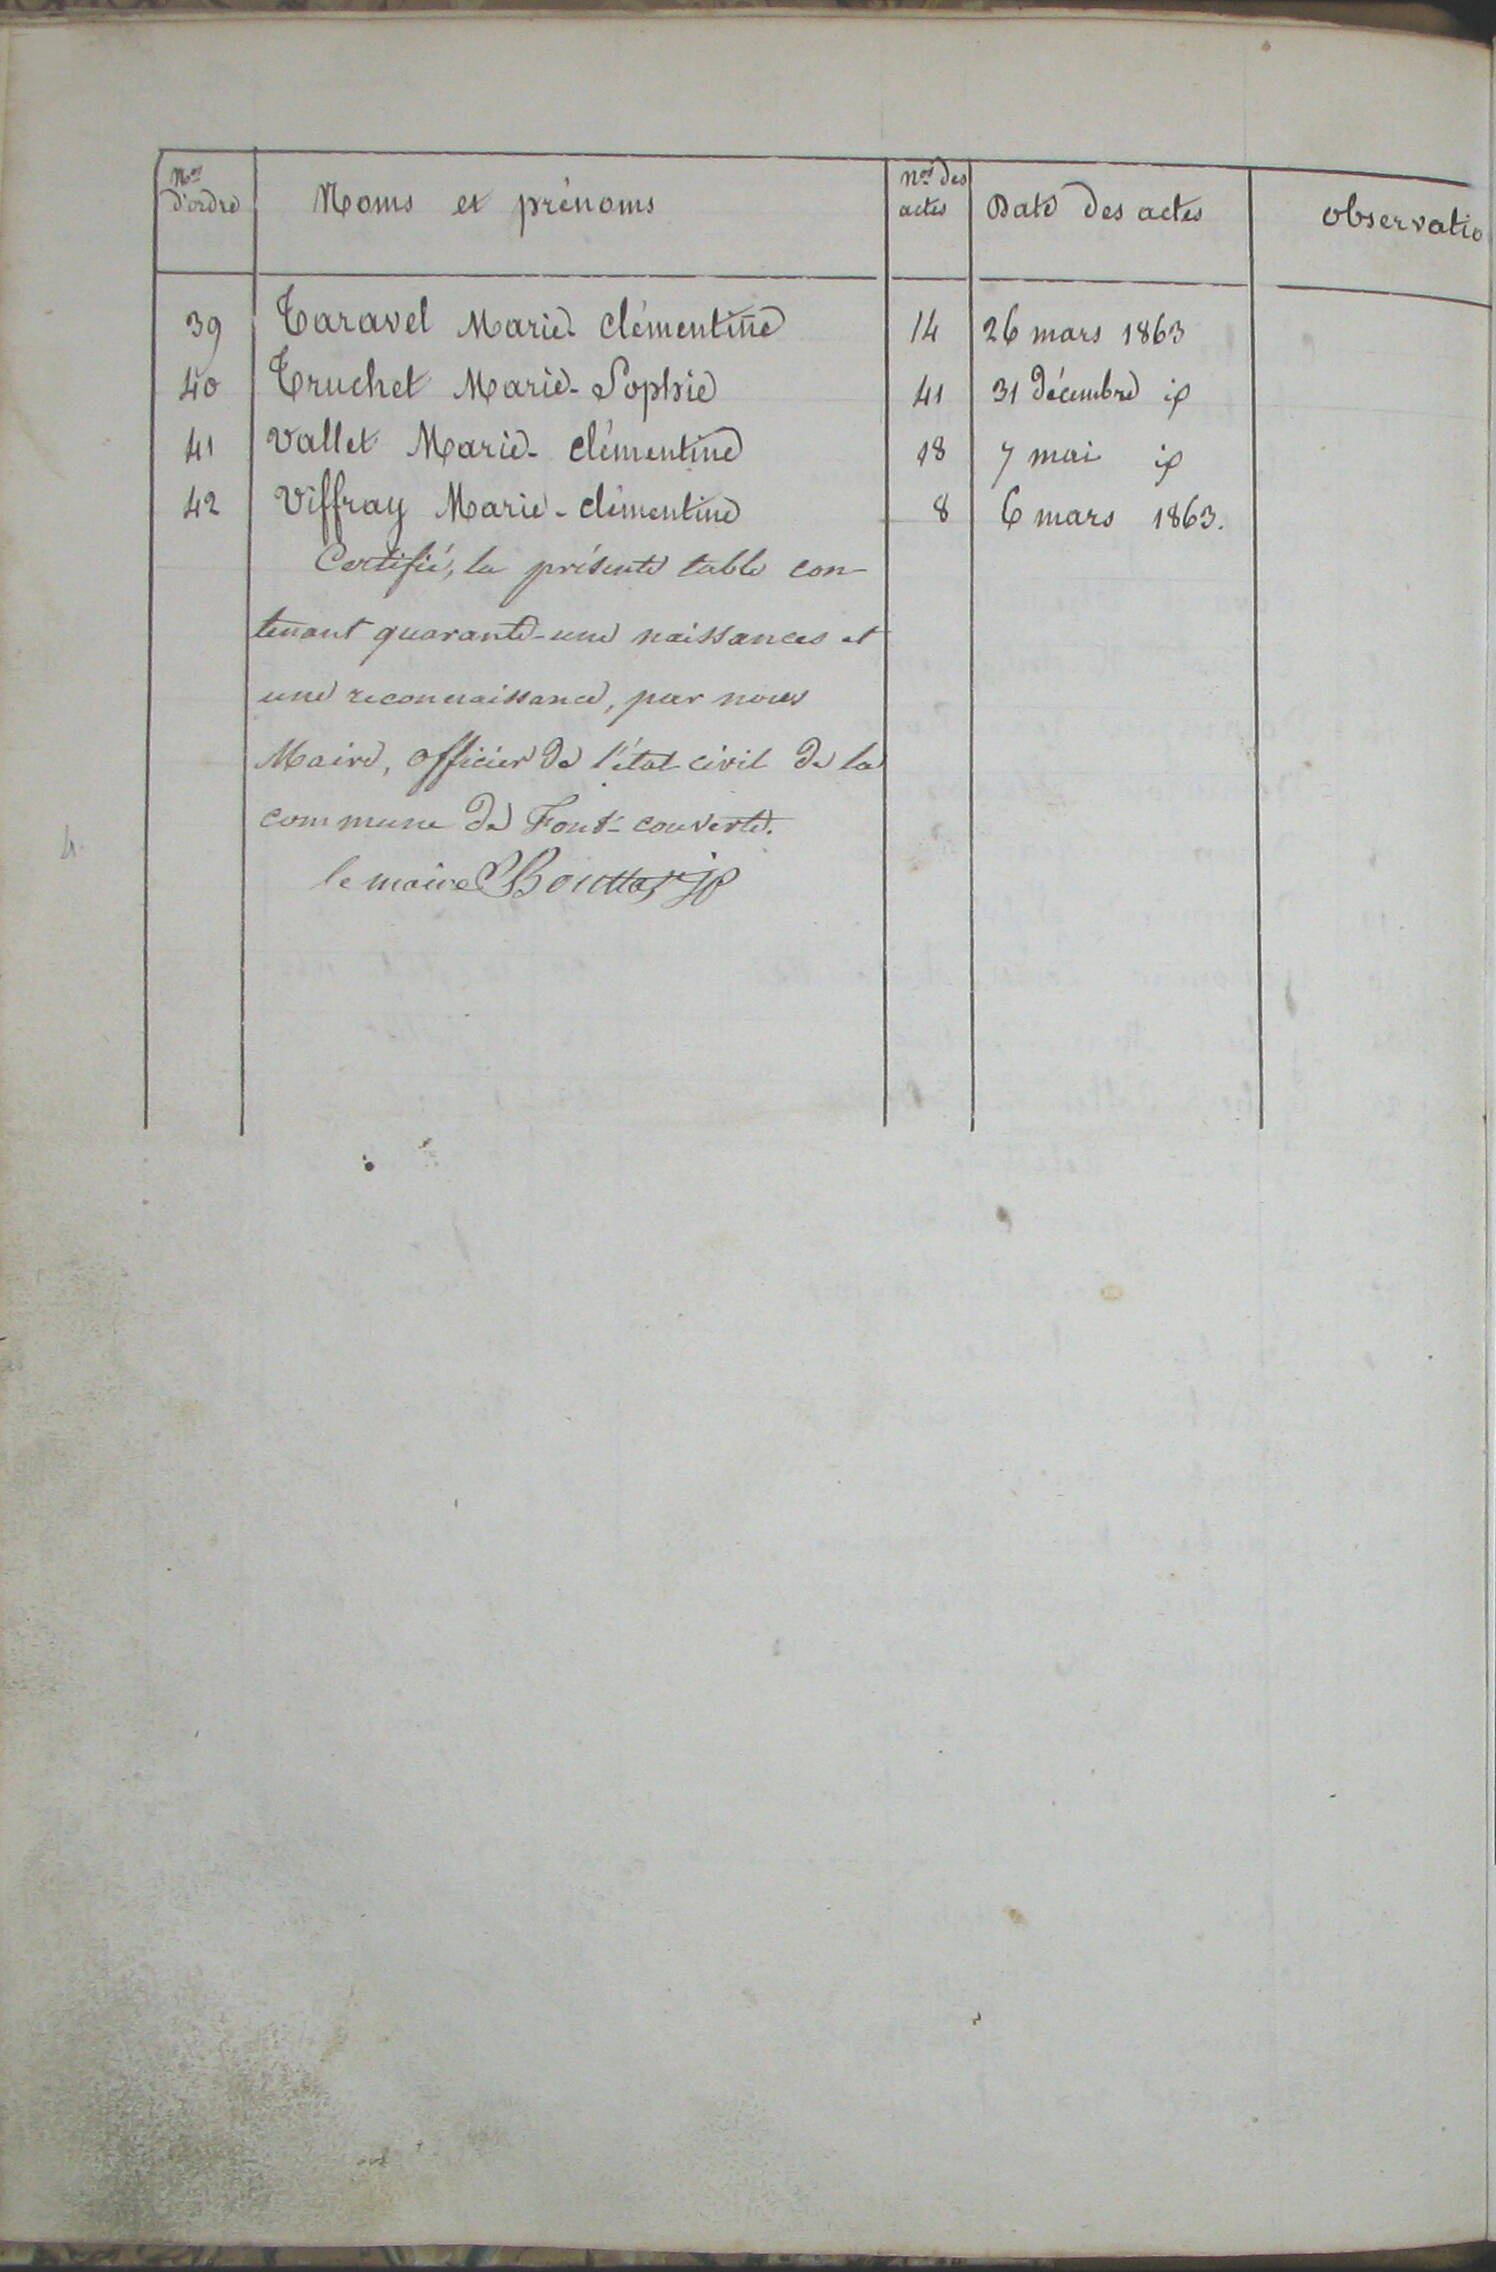 Nos d'ordre Noms et prénoms nos des actes Date des actes observatio
39 Taravel Marie-Clémentine 14 26 mars 1863
40 Truchet Marie-Sophie 41 31 décembre id
41 Vallet Marie-Clémentine 18 7 mai id
42 Viffray Marie-Clémentine 8 6 mars 1863.
Certifié, la présente table con-
tenant quarante-une naissances et
une reconnaissance, par nous
Maire, officier de l'état civil de la
commune de Font-couverte.
le maire